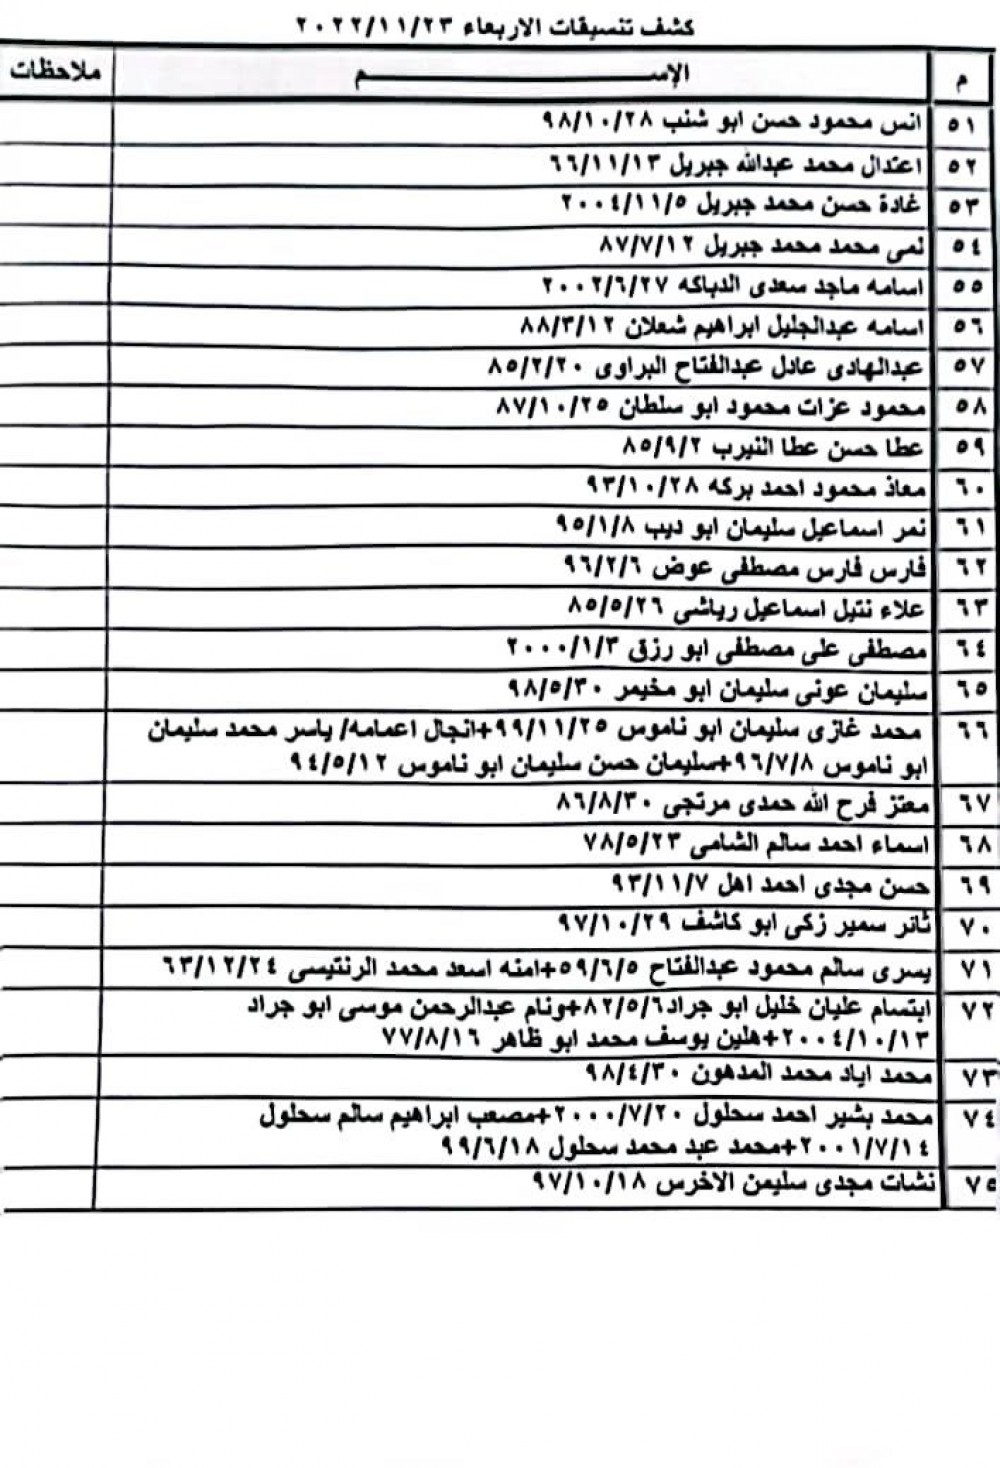 كشف تنسيقات الاربعاء ٢٠٢٢/١١/٢٣
م الإســــــــــم ملاحظات
٥١ انس محمود حسن ابو شنب ٩٨/١٠/٢٨
٥٢ اعتدال محمد عبدالله جبريل ٦٦/١١/١٣
٥٣ غادة حسن محمد جبريل ٢٠٠٤/١١/٥
٥٤ نمى محمد محمد جبريل ٨٧/٧/١٢
٥٥ اسامه ماجد سعدى الدباكه ٢٠٠٢/٦/٢٧
٥٦ اسامه عبدالجليل ابراهيم شعلان ٨٨/٣/١٢
٥٧ عبدالهادى عادل عبدالفتاح البراوى ٨٥/٢/٢٠
٥٨ محمود عزات محمود ابو سلطان ٨٧/١٠/٢٥
٥٩ عطا حسن عطا النيرب ٨٥/٩/٢
٦٠ معاذ محمود احمد بركه ٩٣/١٠/٢٨
٦١ نمر اسماعيل سليمان ابو ديب ٩٥/١/٨
٦٢ فارس فارس مصطفى عوض ٩٦/٢/٦
٦٣ علاء نتيل اسماعيل رياشى ٨٥/٥/٢٦
٦٤ مصطفى على مصطفى ابو رزق ٢٠٠٠/١/٣
٦٥ سليمان عونى سليمان ابو مخيمر ٩٨/٥/٣٠
٦٦ محمد غازى سليمان ابو ناموس ٩٩/١١/٢٥+انجال اعمامه/ ياسر محمد سليمان
ابو ناموس ٩٦/٧/٨+سليمان حسن سليمان ابو ناموس ٩٤/٥/١٢
٦٧ معتز فرح الله حمدى مرتجى ٨٦/٨/٣٠
٦٨ اسماء احمد سالم الشامى ٧٨/٥/٢٣
٦٩ حسن مجدى احمد اهل ٩٣/١١/٧
٧٠ ثائر سمير زكى ابو كاشف ٩٧/١٠/٢٩
٧١ يسرى سالم محمود عبدالفتاح ٥٩/٦/٥+امنه اسعد محمد الرنتيسى ٦٣/١٢/٢٤
٧٢ ابتسام عليان خليل ابو جراد٨٢/٥/٦+ونام عبدالرحمن موسى ابو جراد
٢٠٠٤/١٠/١٣+هلين يوسف محمد ابو ظاهر ٧٧/٨/١٦
٧٣ محمد اياد محمد المدهون ٩٨/٤/٣٠
٧٤ محمد بشير احمد سحلول ٢٠٠٠/٧/٢٠+مصعب ابراهيم سالم سحلول
٢٠٠١/٧/١٤+محمد عبد محمد سحلول ٩٩/٦/١٨
٧٥ نشات مجدى سليمن الاخرس ٩٧/١٠/١٨